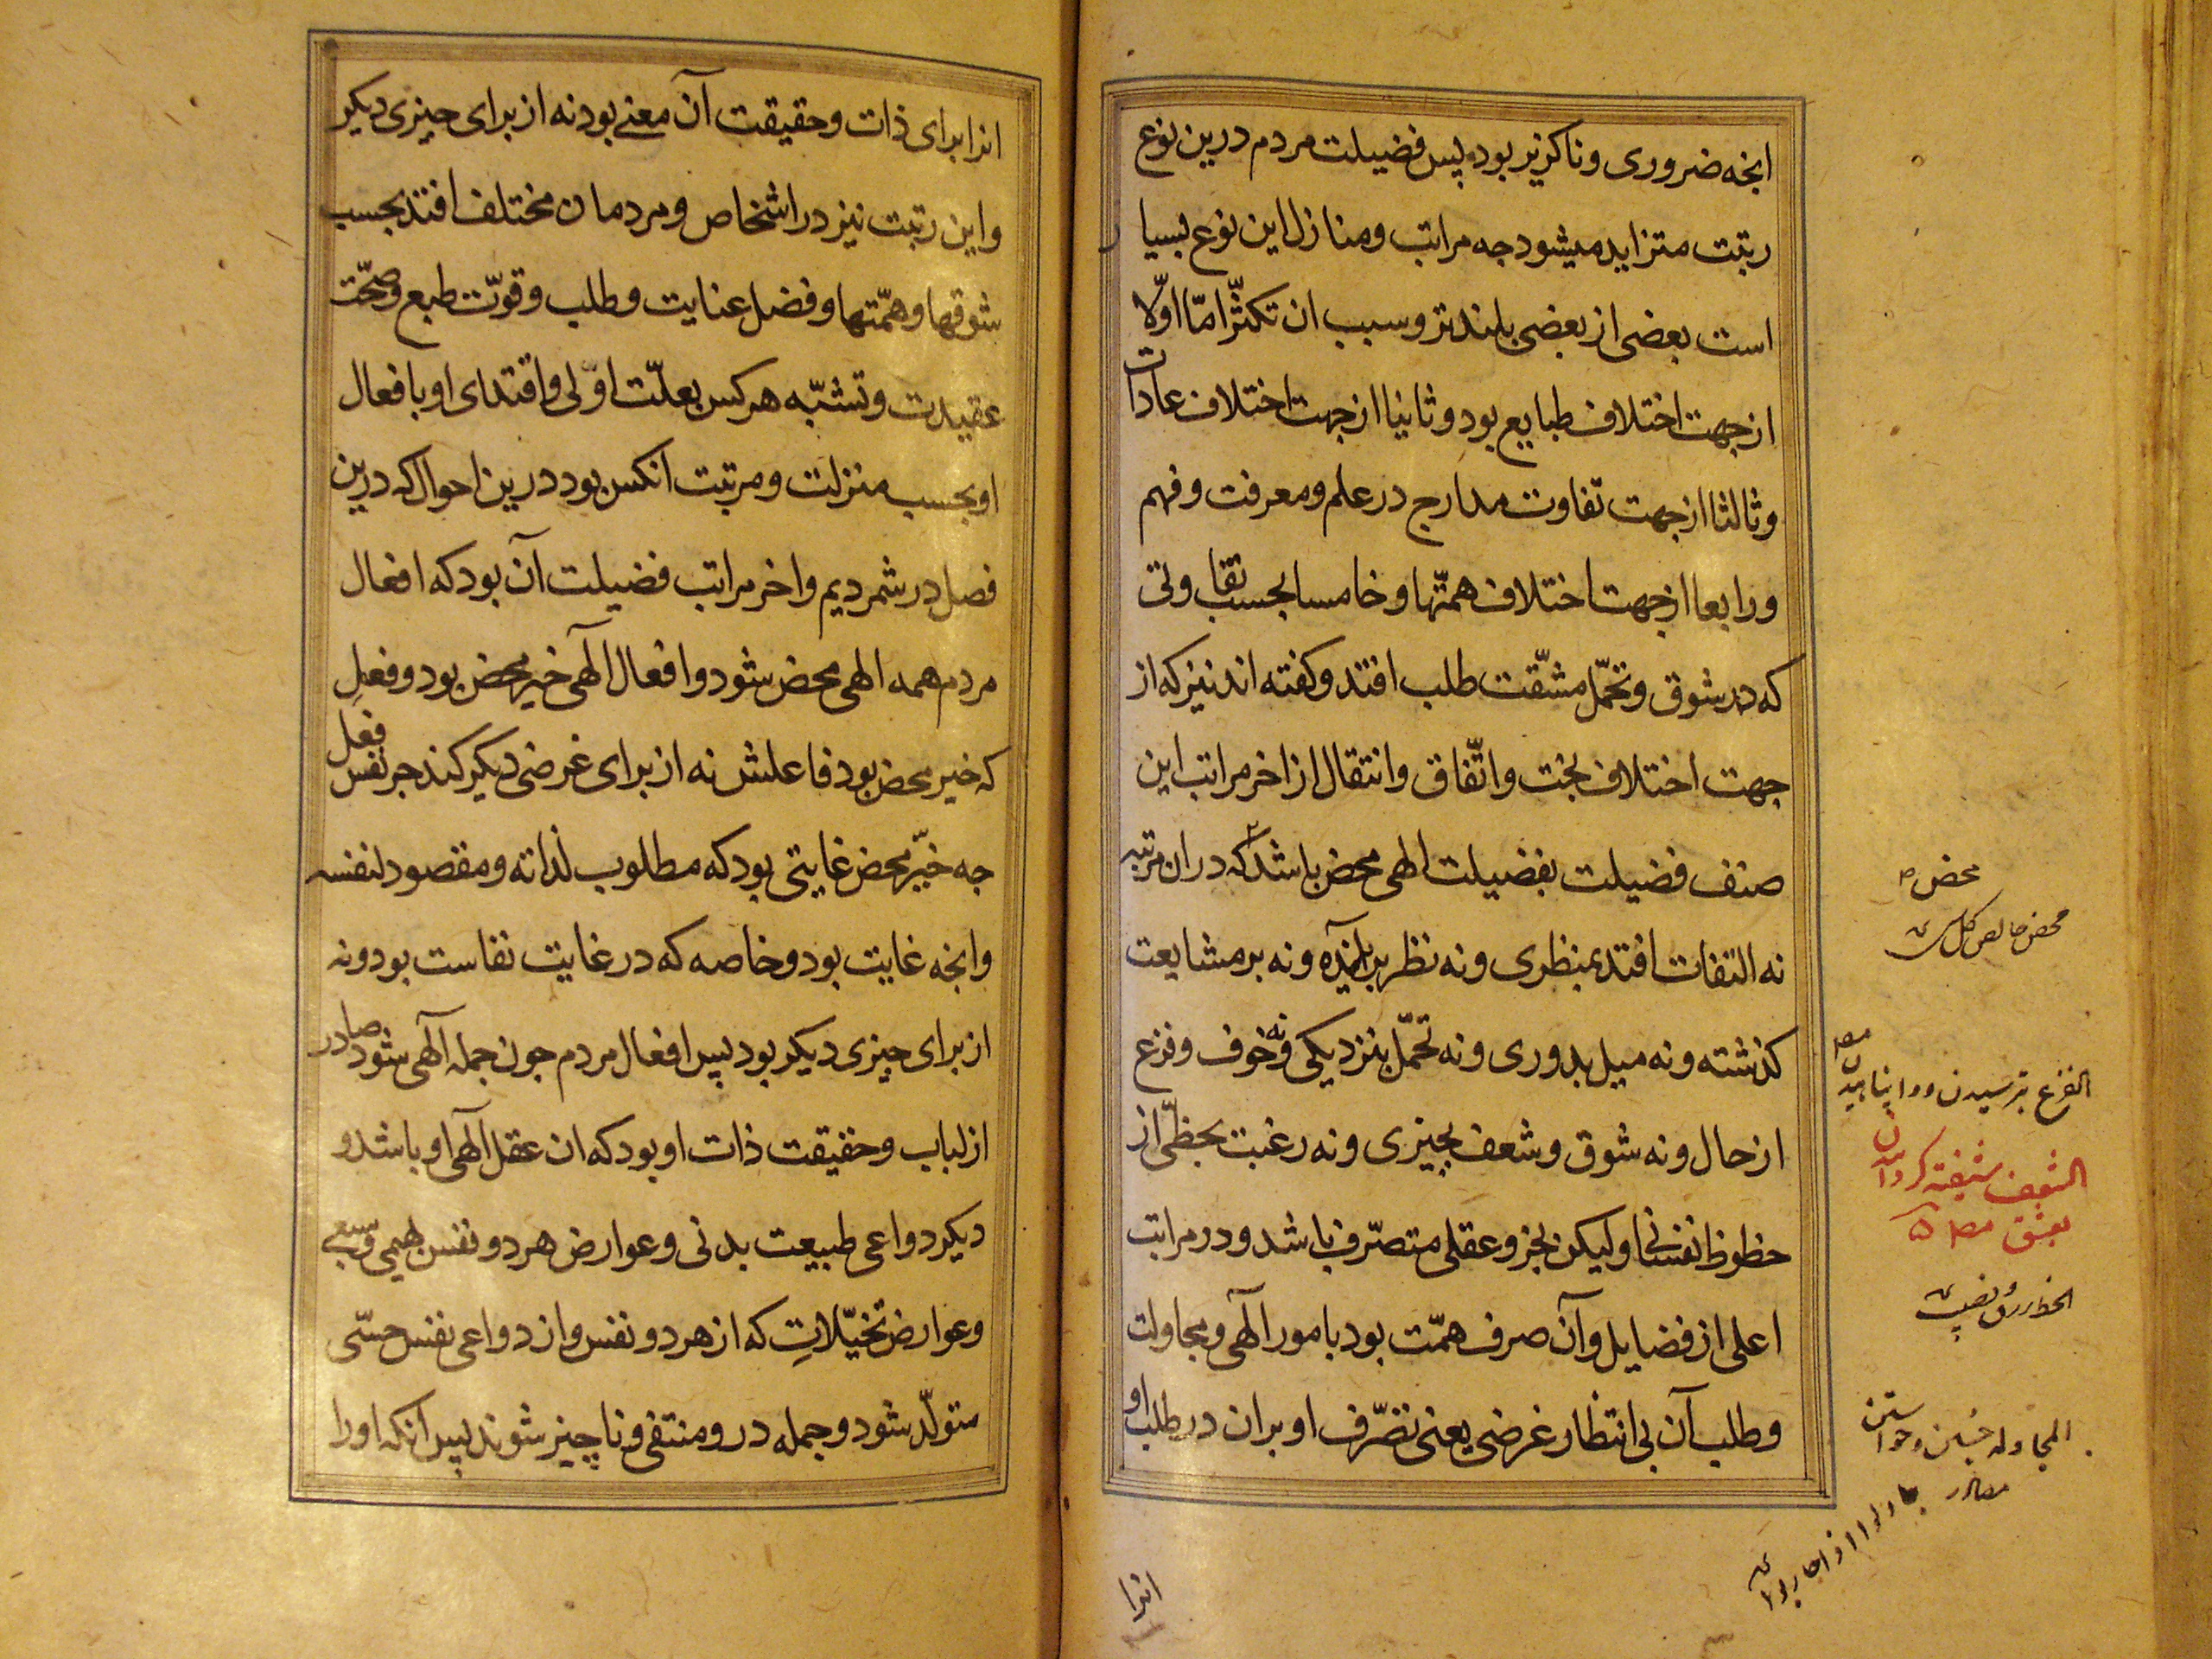 انجه ضروری و ناکزیر بود پس فضیلت مردم درین نوع
رتبت متزاید میشود جه مراتب و منازل این نوع بسیار
است بعضی از بعضی بلندتر و سبب ان تکثّر امّا اوّلا
از جهت اختلاف طبایع بود و ثانیا از جهت اختلاف عادات
و ثالثا از جهت تفاوت مدارج در علم و معرفت و فهم
و رابعا از جهت اختلاف همّتها و خامسا بحسب تفاوتی
که در شوق و تحمّل مشّقت طلب افتد و کفته اند نیز که از
جهت اختلاف بخت و اتّفاق و انتقال از اخر مراتب این
صنف فضیلت بفضیلت الهی محض باشد که دران مرتبه
نه التفات افتد بمنظری و نه نظر براینده و نه بر مشایعت
کذشته و نه میل بدوری و نه تحمّل بنزدیکی و نه خوف و فزع
از حال و نه شوق و شعف بچیزی و نه رغبت بحظّی از
حظوظ نفسانی اولیکن بجزو عقلی متصرّف باشد و در مراتب
اعلی از فضایل و آن صرف همّت بود بامور آلهی و مجاولت
و طلب آن بی انتظار غرضی یعنی تضرّف او بران در طلب او
محض
محض خالص کل
الفزع ترسیدن و واپناهیدن مصا
الشعف شیفته کردانیدن
بعشق مصا
نصیب
المجاوله جستن و خواستن
اترا
انرا برای ذات و حقیقت آن معنے بود نه از برای جیزی دیکر
و این رتبت نیز در اشخاص و مردمان مختلف افتد بحسب
شوقها و همّتها و فضل عنایت و طلب و قوّت طبع و صحّت
عقیدت و تشبّه هر کس بعلّت اوّلی و اقتدای او با فعال
او بحسب منزلت و مرتبت انکس بود درین احوال که درین
فصل در شمردیم و اخر مراتب فضیلت آن بود که افعال
مردم همه الهی محض شود و افعال آلهی خیر محض بود و فعل
که خیر محض بود فاعلش نه از برای غرضی دیکر کند جز نفس فعل
جه خیر محض غایتی بود که مطلوب لذاته و مقصود لنفسه
و انجه غایت بود و خاصه که در غایت نفاست بود و نه
از برای چیزی دیکر بود پس افعال مردم جون جمله آلهی شود صادر
از لباب و حقیقت ذات او بود که ان عقل آلهی او باشد و
دیکر دواعی طبیعت بدنی و عوارض هر دو نفس بهیمی و سبعی
و عوارض تخیّلاتِ که از هر دو نفس و از دواعی نفس حسّی
متولّد شود و جمله درو منتفی و ناچیز شوند پس انکه او را